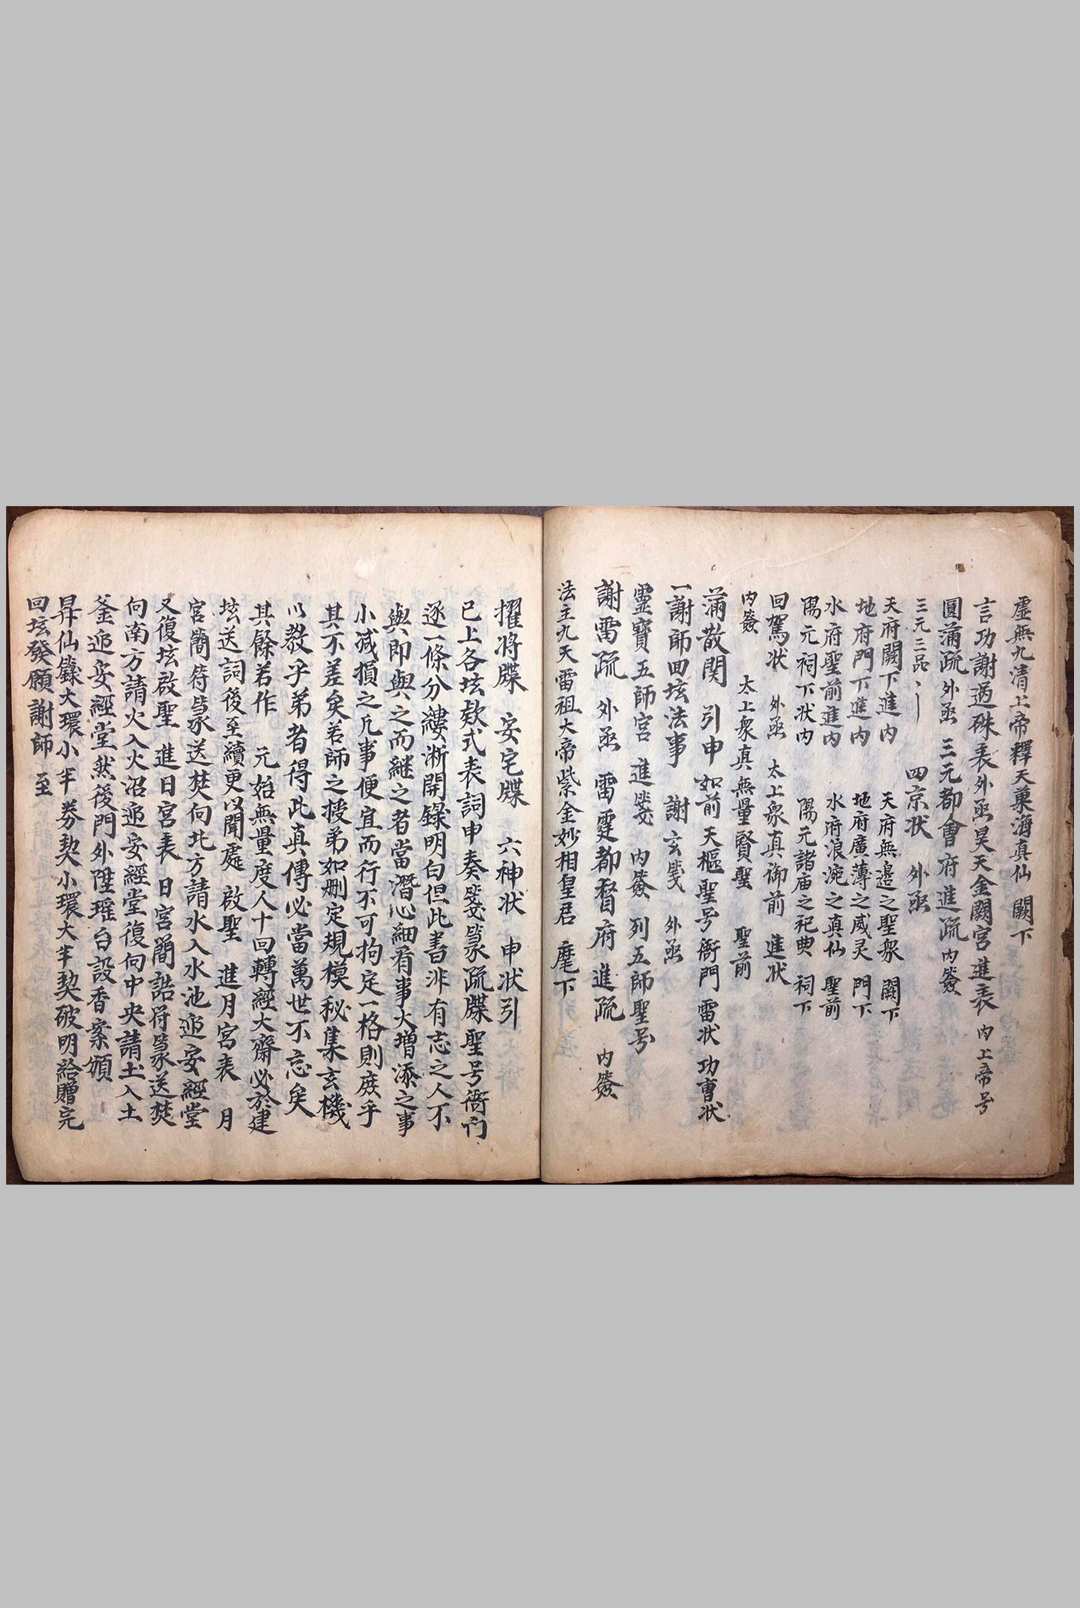 虛無九清上帝釋天菓海真仙 闕下
言功謝過硃表外函昊天金闕宮進表 內上帝号
圓滿疏 外函 三元都會府進疏 內簽
三元三品 四京状 外函
天府闕下進內 天府無邊之聖衆 闕下
地府門下進內 地府廣薄之威灵 門下
水府聖前進內 水府浪滟之真仙 聖前
陽元祠下状內 陽元諸庙之祀典 祠下
回駕状 外函 太上衆真御前 進状
內簽 太上衆真無量賢聖 聖前
滿散関 引申如前天樞聖号衙門 雷状功曹状
一謝師回坛法事 謝玄箋 外函
靈寶五師宮 進 內簽 列五師聖号
謝雷疏 外函 雷霆都督府進疏 內簽
法主九天雷祖大帝紫金妙相皇君 麾下
擢将牒 安宅牒 六神状 申状引
已上各坛欵式表詞申奏箋篆疏牒聖号衙門
逐一條分縷淅開錄明白但此書非有志之人不
與即與之而継之者當潛心細看事大增添之事
小减損之凢事便宜而行不可拘定一格則庻乎
其不差矣若師之授弟如删定規模秘集玄機
以教乎弟者得此真傳必當萬世不忘矣
其餘若作 元始無量度人十回轉經大齋必於建
坛送詞後至續更以聞處 啟聖 進月宮表 月
宮簡符篆送焚向北方請水入水池追安經堂
又復坛啟聖 進日宮表 日宮簡誥符篆送焚
向南方請火入火沼追安經堂復向中央請土入土
釜追安經堂然後門外陞瑤台設香案頒
昇仙籙大環小半券契小環大半契破明給贈完
回坛發願謝師 至